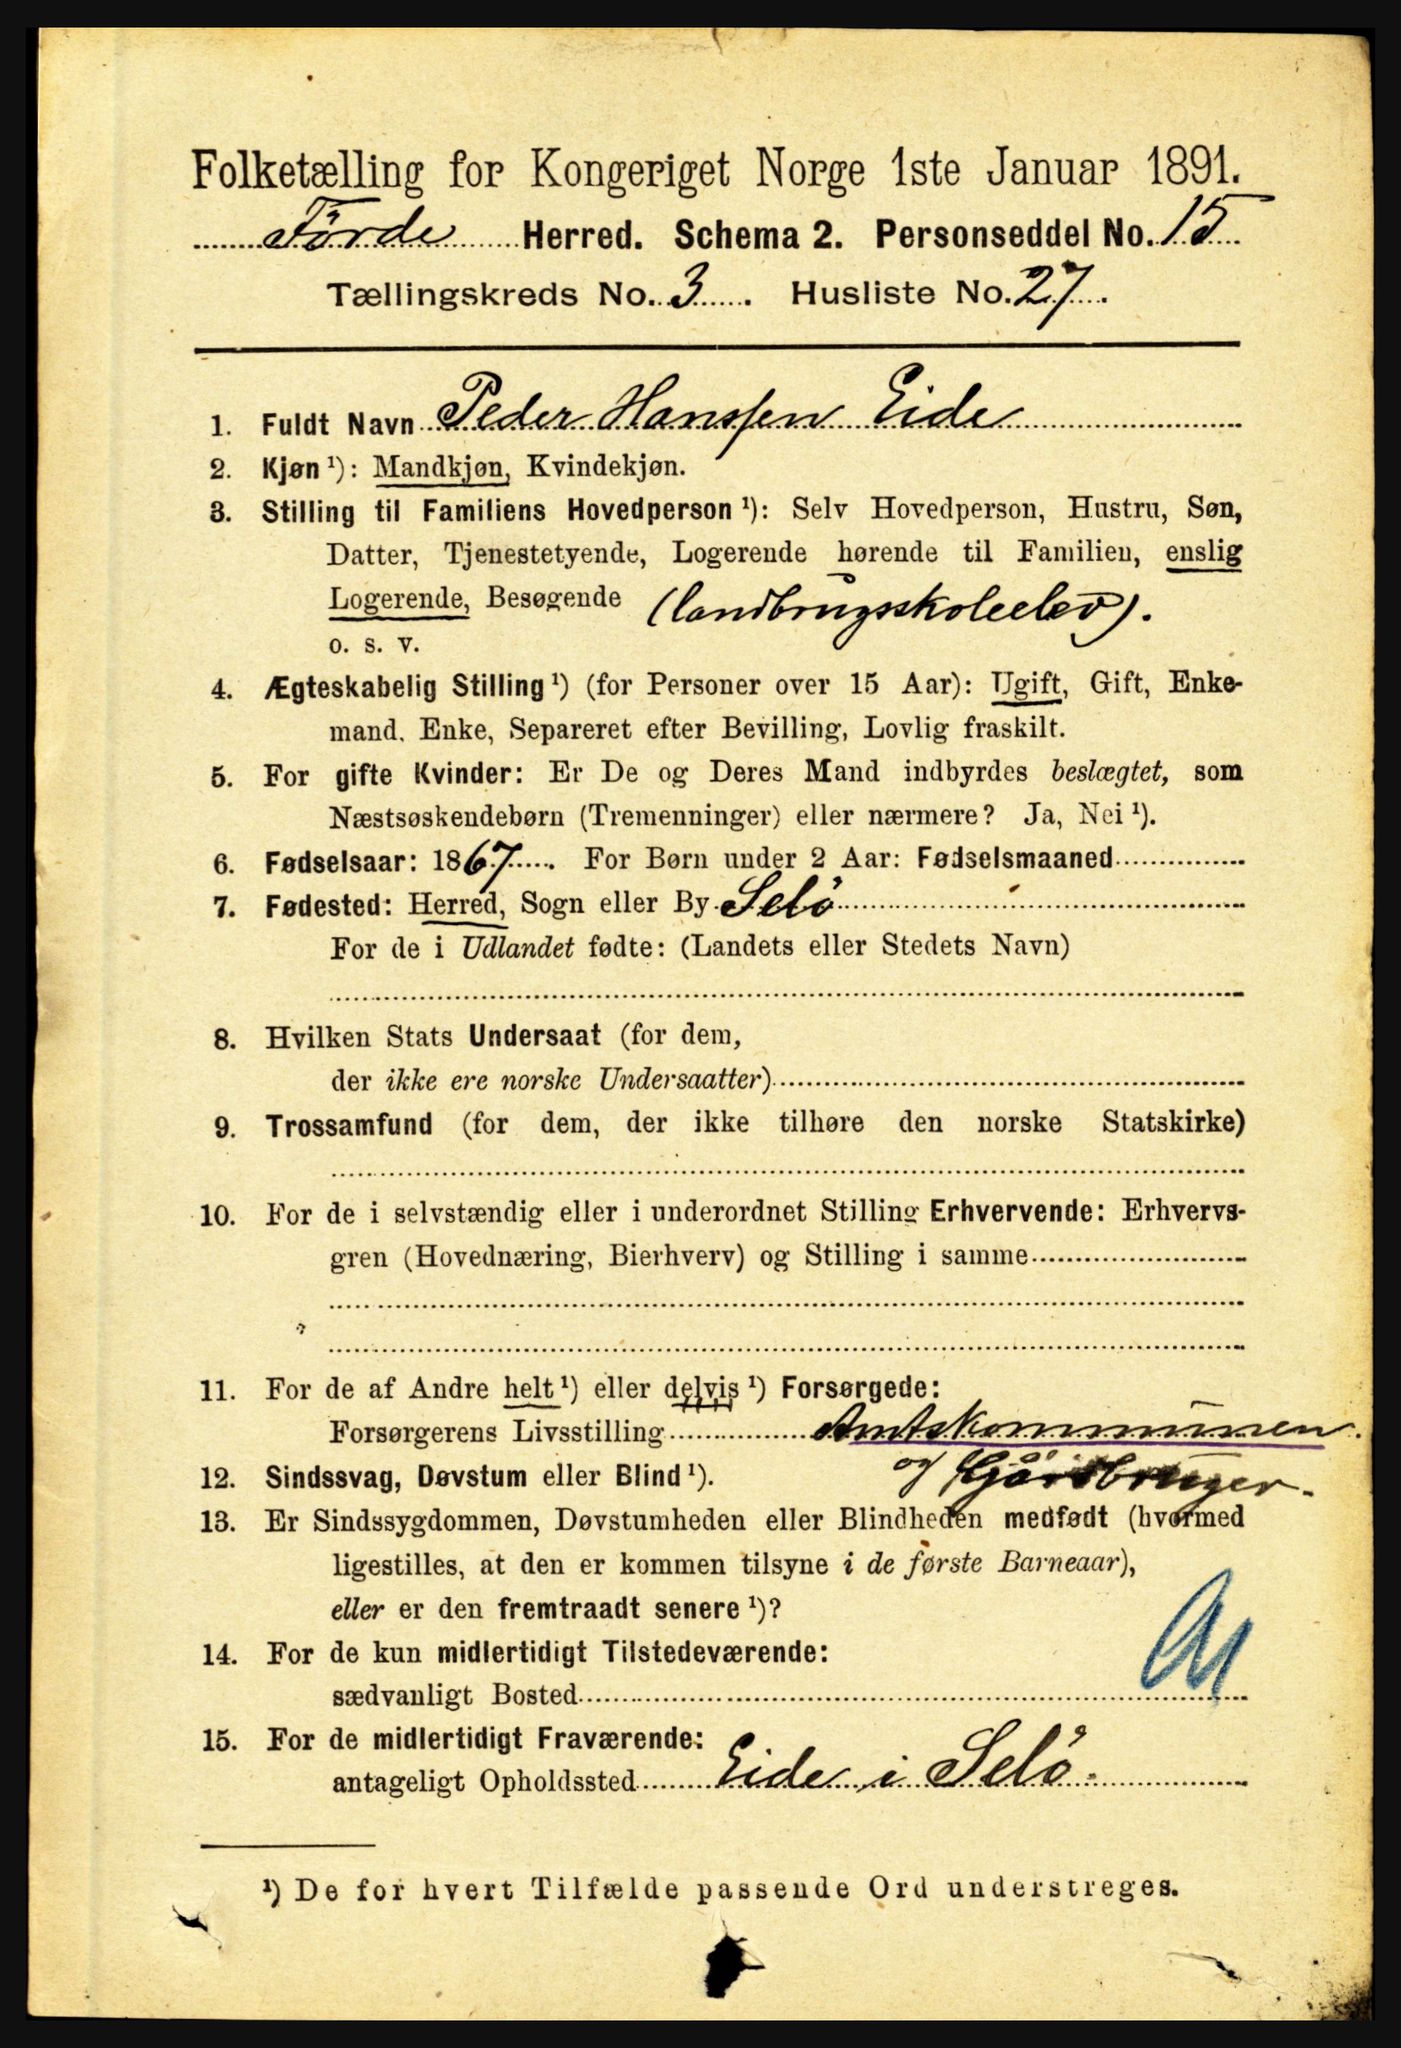 Folketælling for Kongeriget Norge 1ste Januar 1891.
Förde Herred. Schema 2. Personseddel No. 15
Tællingskreds No. 3. Husliste No. 27.
1. Fuldt Navn Peder Hanssen Eide
2. Kjøn ¹): Mandkjøn, Kvindekjøn.
3. Stilling til Familiens Hovedperson ¹): Selv Hovedperson, Hustru, Søn,
Datter, Tjenestetyende, Logerende hørende til Familien, enslig
Logerende, Besøgende (landbrugsskoleelev).
o. s. v.
4. Ægteskabelig Stilling ¹) (for Personer over 15 Aar): Ugift, Gift, Enke-
mand, Enke, Separeret efter Bevilling, Lovlig fraskilt.
5. For gifte Kvinder: Er De og Deres Mand indbyrdes beslægtet, som
Næstsøskendebørn (Tremenninger) eller nærmere? Ja, Nei ¹).
6. Fødselsaar: 1867. For Børn under 2 Aar: Fødselsmaaned
7. Fødested: Herred, Sogn eller By Selö
For de i Udlandet fødte: (Landets eller Stedets Navn)
8. Hvilken Stats Undersaat (for dem,
der ikke ere norske Undersaatter)
9. Trossamfund (for dem, der ikke tilhøre den norske Statskirke)
10. For de i selvstændig eller i underordnet Stilling Erhvervende: Erhvervs-
gren (Hovednæring, Bierhverv) og Stilling i samme
11. For de af Andre helt ¹) eller delvis ¹) Forsørgede:
Forsørgerens Livsstilling Amtskommunen.
og Gårdbruger.
12. Sindssvag, Døvstum eller Blind ¹).
13. Er Sindssygdommen, Døvstumheden eller Blindheden medfødt (hvormed
ligestilles, at den er kommen tilsyne i de første Barneaar),
eller er den fremtraadt senere ¹)?
14. For de kun midlertidigt Tilstedeværende:
sædvanligt Bosted
15. For de midlertidigt Fraværende:
antageligt Opholdssted Eide i Selö.
¹) De for hvert Tilfælde passende Ord understreges.